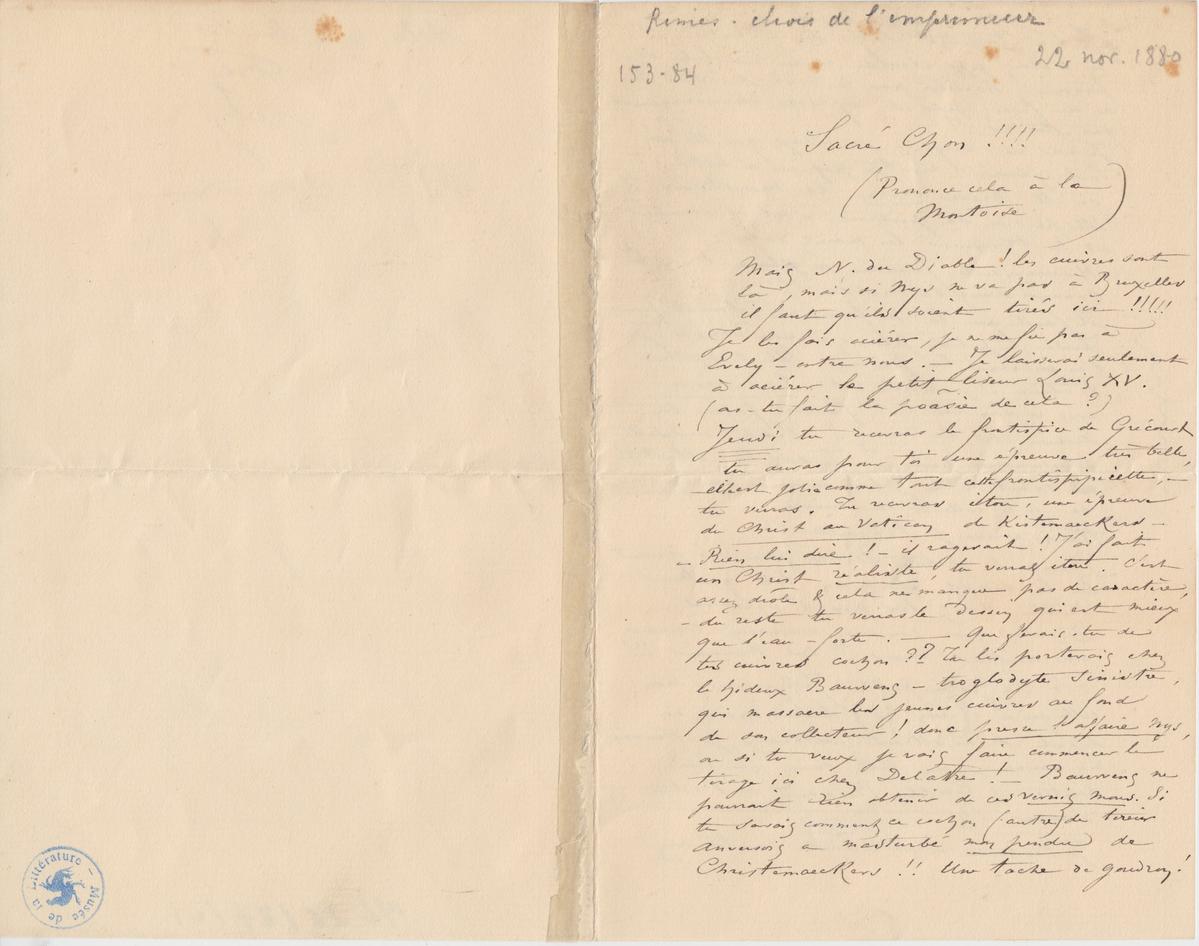 Rimes - choix de l'imprimeur
22 nov. 1880
153-84
Sacré Chon !!!!
(Prononce cela à la
Montoise)
Mais N. du Diable ! les cuivres sont
là, mais si Nys ne va pas à Bruxelles
il faut qu'ils soient tirés ici !!!!!
Je les fais aciérer, je ne me fie pas à
Evely – entre nous. — Je laisserai seulement
à aciérer le petit liseur Louis XV.
(as-tu fait la poâsie de cela ?)
Jeudi tu recevras le frontispice de Grécourt
tu auras pour toi une épreuve très belle,
elle est jolie comme tout cette frontispicette, –
tu verras. Tu recevras itou, une épreuve
du Christ au Vatican de Kistemaeckers –
– Rien lui dire ! – il ragerait ! J'ai fait
un Christ réaliste, tu verras itou. C'est
assez drôle & cela ne manque pas de caractère,
– du reste tu verras le dessin qui est mieux
que l'eau-forte. — Que ferais-tu de
tes cuivres cochon ?? Tu les porterais chez
le hideux Bauwens – troglodyte sinistre,
qui massacre les jeunes cuivres au fond
de son collecteur ! donc presse l'affaire Nys,
ou si tu veux je vais faire commencer le
tirage ici chez Delâtre ! – Bauwens ne
pourrait rien obtenir de ces vernis mous. Si
tu savais comment ce cochon (autre) de tireur
Anversois a masturbé mon pendu de
Christemaeckers !! Une tache de goudron !
Musée de la Littérature –